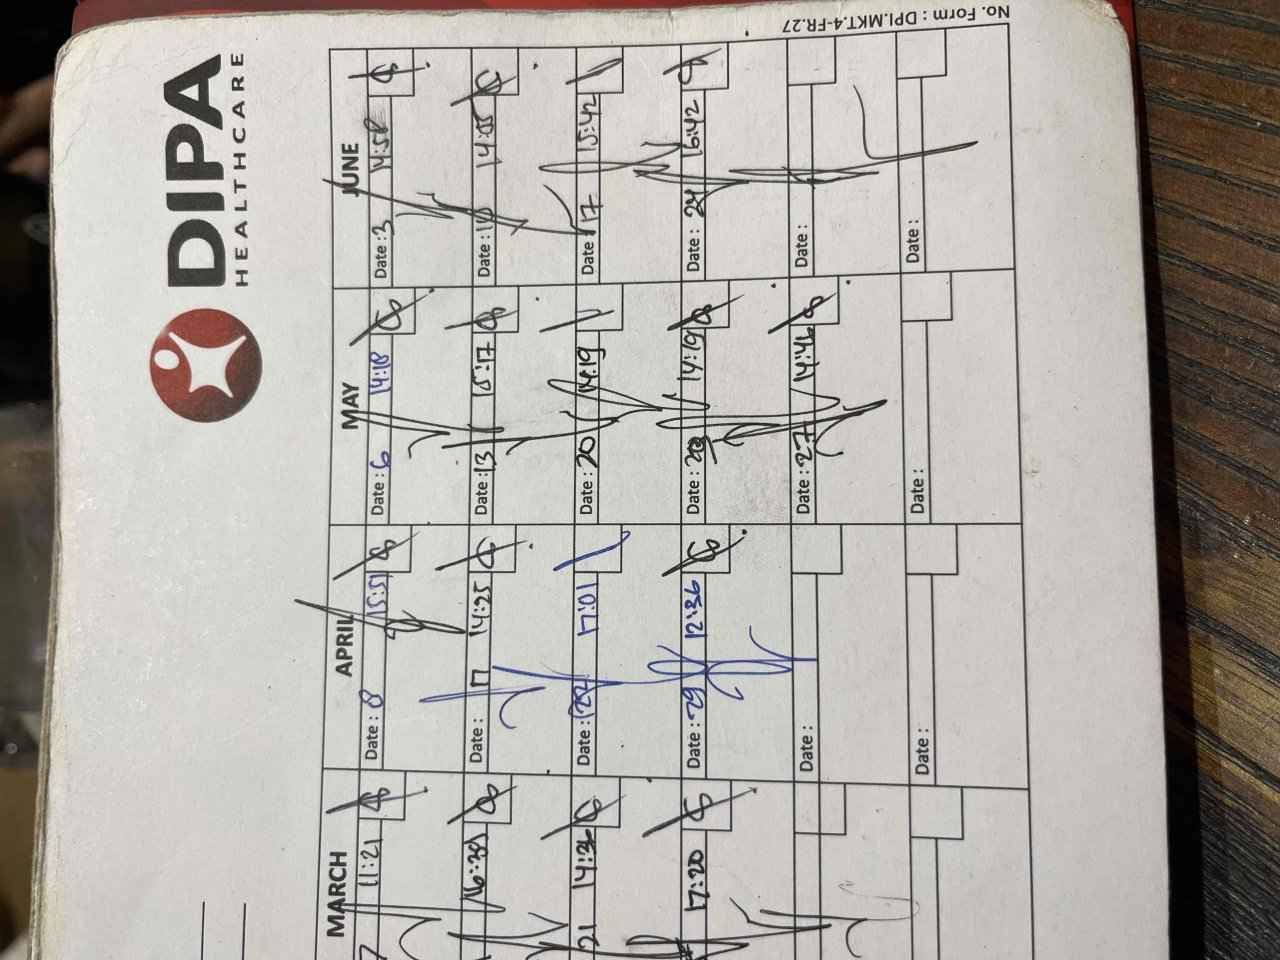 DIPA
HEALTHCARE
No. Form : DPI.MKT.4-FR.27
MARCH
11:21
16:30
21 14:36
17:20
APRIL
Date : 8 15:51
Date : 17 14:25
Date : 22 17:01
Date : 29 12:36
Date :
Date :
MAY
Date : 6 14:18
Date : 13 15:17
Date : 20 14:19
Date : 14:19
Date : 27 14:46
Date :
JUNE
Date : 3 14:58
Date : 14:05
Date : 17 15:42
Date : 24 16:42
Date :
Date :